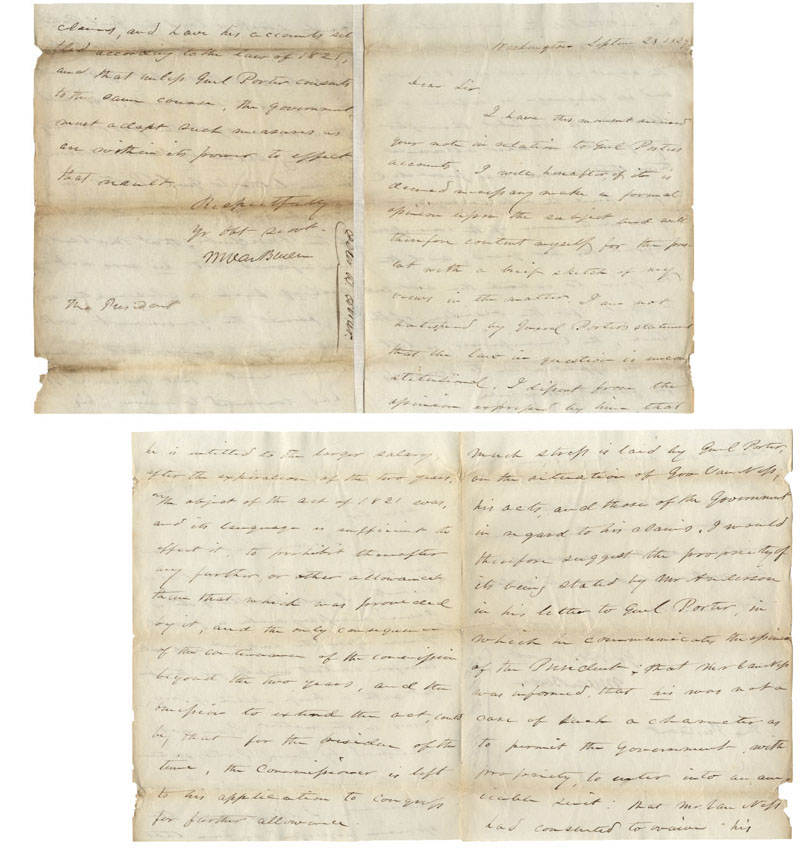 Washington Septem 28 1829
Dear Sir
I have this moment received
your note in relation to Genl Porters
accounts. I will hereafter if it is
deemed necessary make a formal
opinion upon the subject and will
therefore content myself for the pre-
sent with a brief sketch of my
views in the matter. I am not
satisfied by General Porters statement
that the law in question is uncon
stitutional. I dissent from the
opinion expressed by him, that
he is entitled to the larger salary
after the expiration of the two years.
The object of the act of 1821 was,
and its language is sufficient to
effect it, to prohibit thereafter
any further or other allowance
than that which was provided
by it, and the only consequence
of the continuance of the commission
beyond the two years, and the
omission to extend the act, could
be that for the residue of the
time, the Commissioner is left
to his application to congress
for further allowance.
Much stress is laid by Genl Porter,
on the situation of Gov Van Ness,
his acts, and those of the Government
in regard to his claims. I would
therefore suggest the propriety of
its being stated by Mr Anderson
in his letter to Genl Porter, in
which he communicates the opinion
of the President; that Mr Van Ness
was informed, that his was not a
case of such a character as
to permit the Government, with
propriety, to enter into an am
icable suit: that Mr Van Ness
had consented to waive his
claims, and have his accounts set
tled according to the law of 1821,
and that unless Genl Porter consents
to the same course, the Government
must adopt such measures as
are within its power to effect
that result.
Respectfully
yr obt servt.
M Van Buren
The President